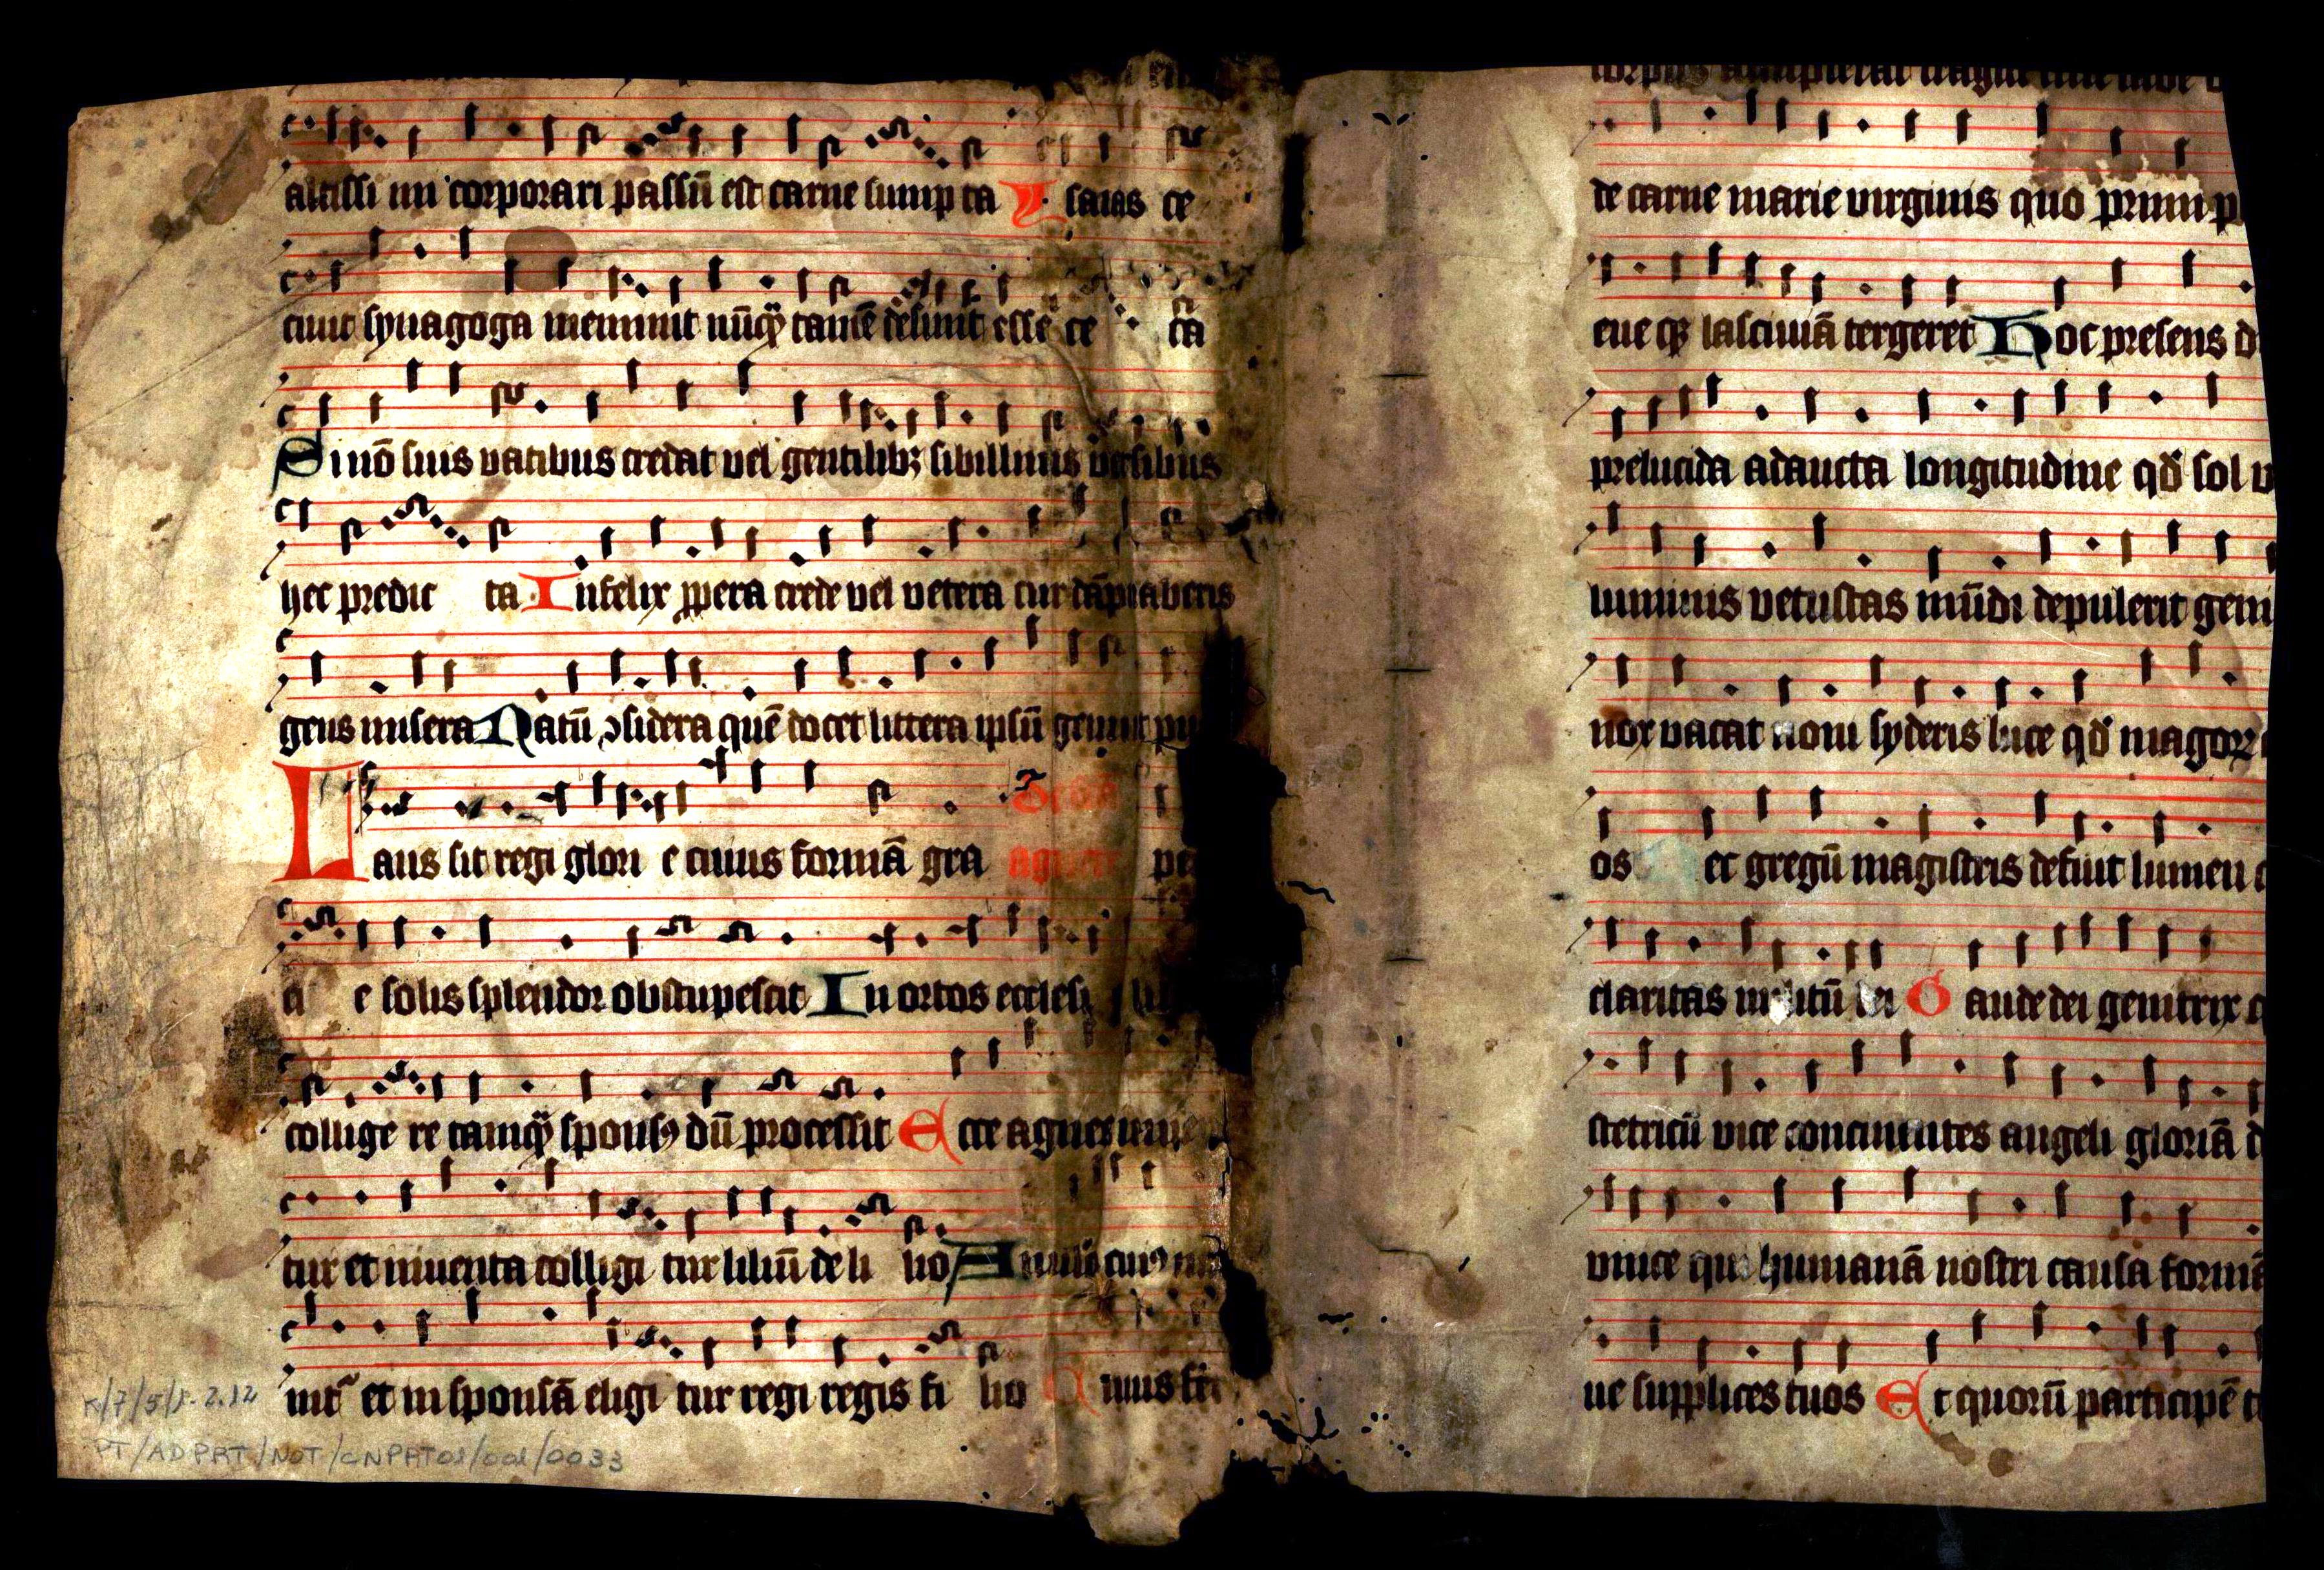 altissi mi corporari passū est carne sump ta Ysaias ce
cinit synagoga meminit nūqȝ tamē desinit esse ce ca
Si nō suis vatibus credat vel gentilibȝ sibillinis versibus
hec predic ta Infelix ꝓpera crede vel vetera cur dāpnaberis
gens misera Natū ↄsidera quē docet littera ipsū genuit pu
Laus sit regi glori e cuius formā gra
ci e solis splendor obstupescit In ortos ecclesi
collige re tamqȝ sponsꝰ dū processit Ecce agnes
tur et iuventa colligi tur liliū de li lio Anulo cuiꝰ
nit᷑ et in sponsā eligi tur regi regis fi lio
de carne marie virginis quo primi p
eue qȝ lasciuiā tergeret Hoc presens d
prelucida adaucta longitudine qd̄ sol v
luminis vetustas mūdi depulerit geni
nox vacat noui syderis luce qd̄ magoꝝ
os ec gregū magistris defuit lumen
claritas militū dei Gaude dei genitrix
stetricū vice concinentes angeli gloriā d
vnice qui humanā nostri causa formā
ue supplices tuos Et quorū participē t
K/7/5/1-2.12
PT/ADPRT/NOT/CNPRT01/001/0033